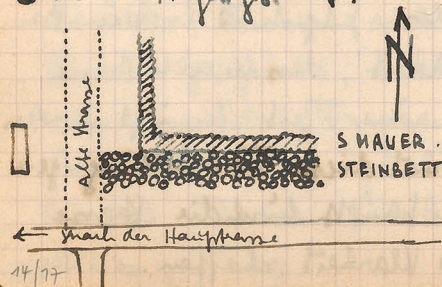 N
Alte Strasse
S MAUER.
STEINBETT
nach der Hauptstrasse
14/17